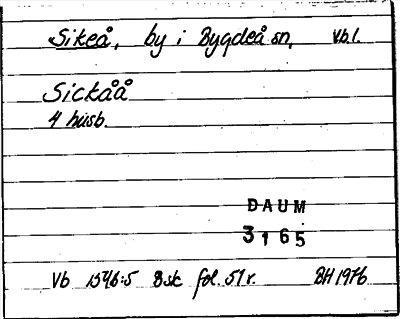 Sikeå, by i Bygdeå sn, Vb.l.
Sickåå
4 husb.
DAUM
3165
Vb 1546:5 Bsk fol. 51 r. BH 1976